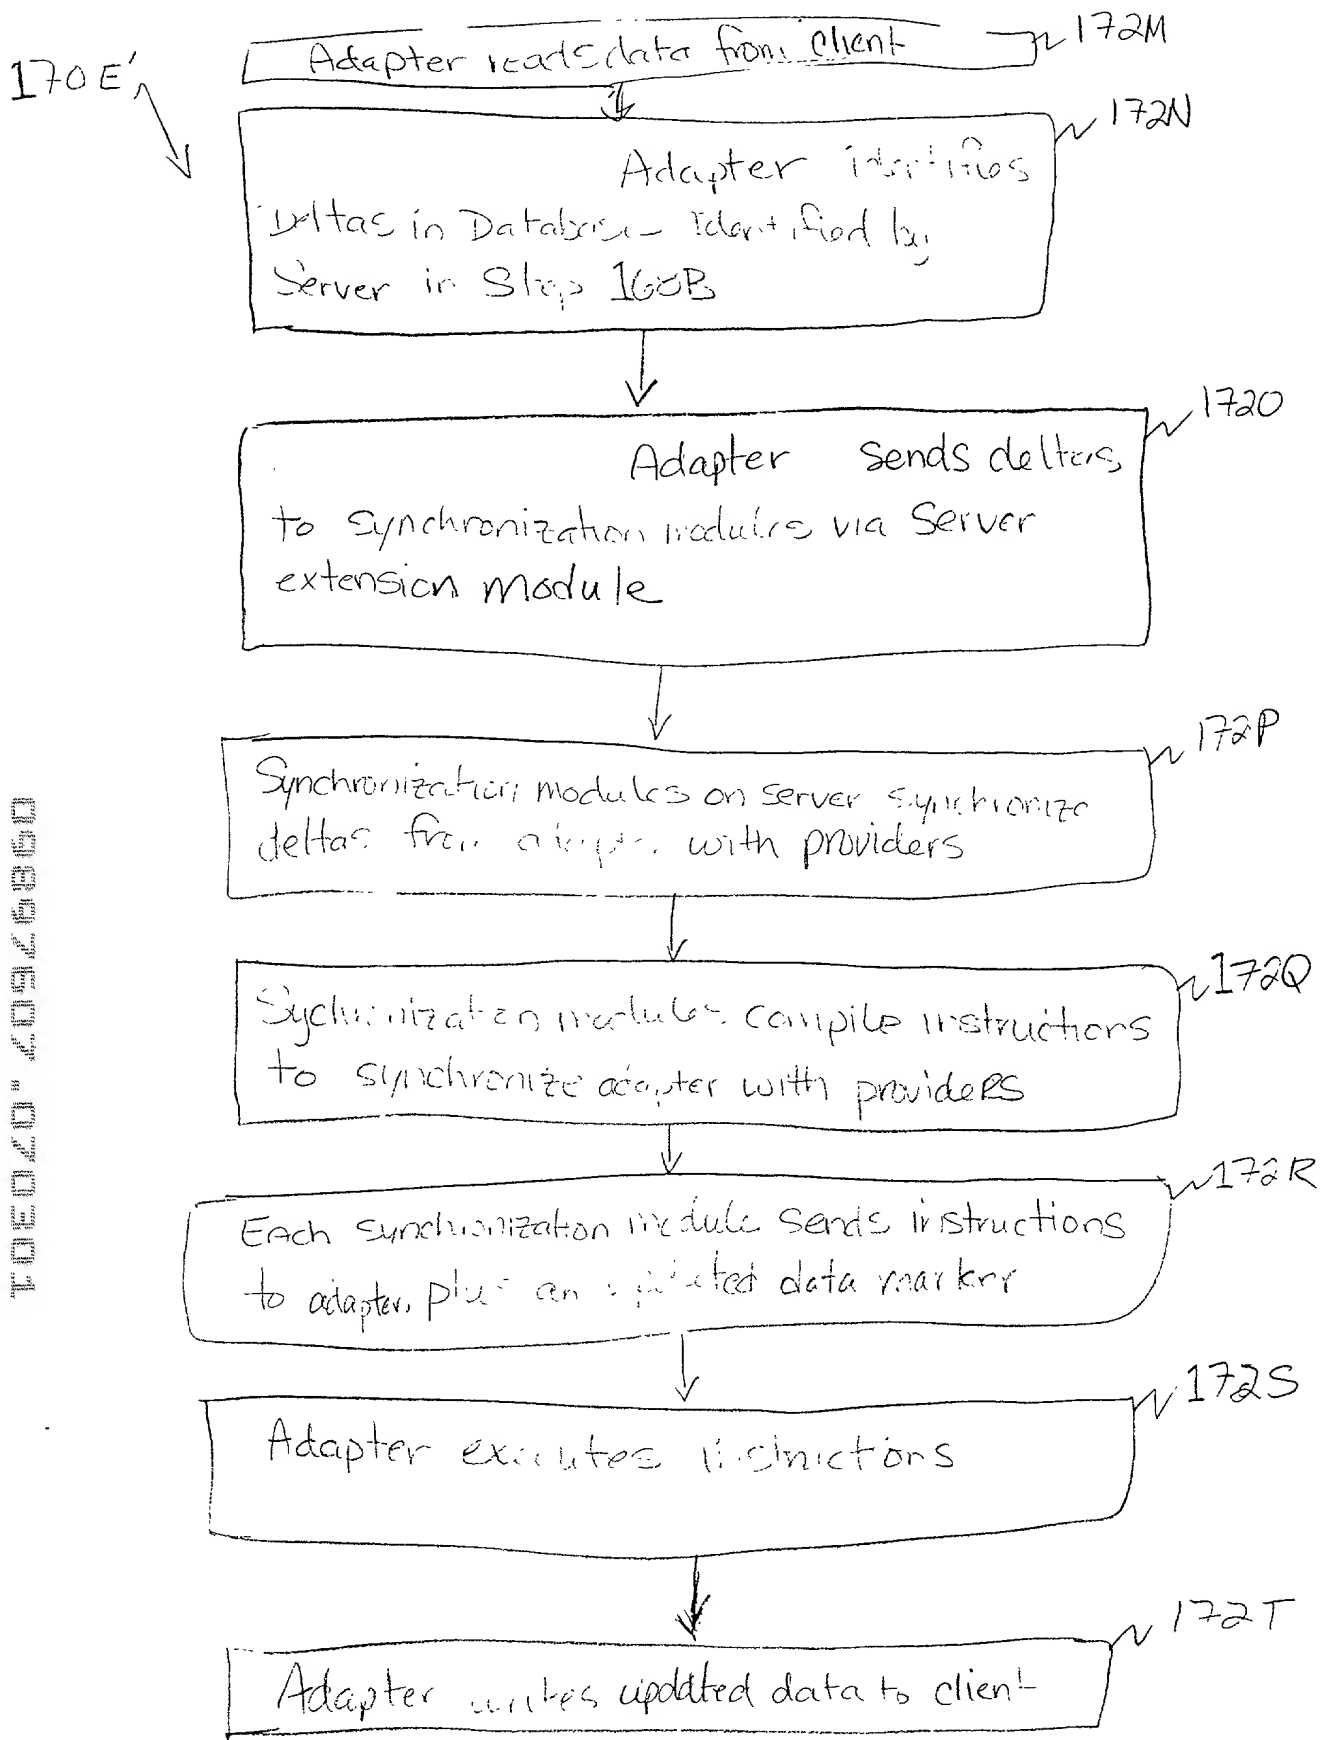 170E'
Adapter reads data from client
172M
172N
Adapter identifies
Deltas in Database Identified by
Server in Step 160B
172O
Adapter sends deltas
to synchronization modules via Server
extension module
172P
Synchronization modules on server synchronize
deltas from adapter with providers
172Q
Sychronization modules compile instructions
to synchronize adapter with providers
172R
Each synchronization module sends instructions
to adapter, plus an updated data marker
172S
Adapter executes instructions
172T
Adapter writes updated data to client
09897607.070301